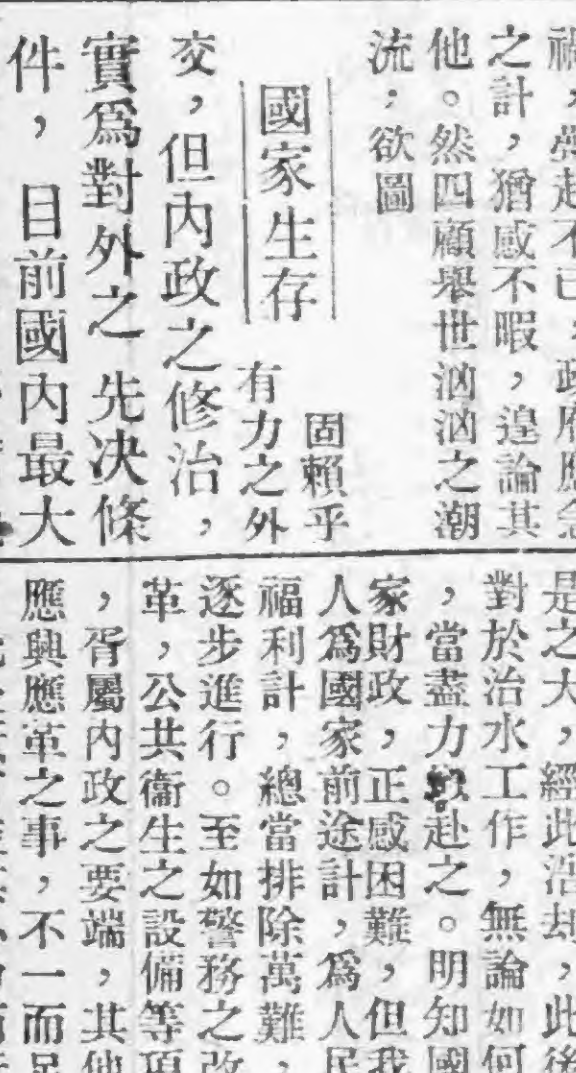 起不已，政府應急
之計，猶感不暇，遑論其
他。然四顧舉世洶洶之潮
流，欲圖
國家生存
固賴乎
有力之外
交，但內政之修治，
實爲對外之 先决條
件， 目前國內最大
是之大，經此浩刦，此後
對於治水工作，無論如何
，當盡力赴之。明知國
家財政，正感困難，但我
人爲國家前途計，爲人民
福利計，總當排除萬難，
逐步進行。至如警務之改
革，公共衞生之設備等項
，胥屬內政之要端，其他
應興應革之事，不一而足